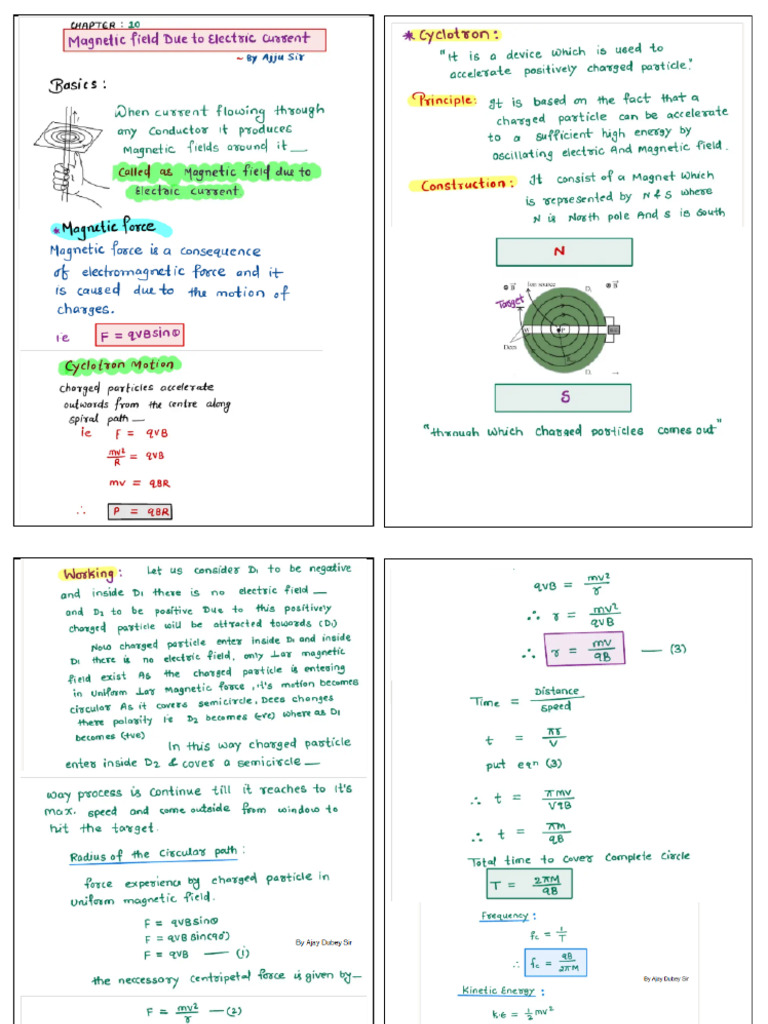 CHAPTER : 10
Magnetic field Due to Electric Current
~ By Ajju Sir
Basics :
When current flowing through
any conductor it produces
Magnetic fields around it __
Called as Magnetic field due to
Electric current
* Magnetic force
Magnetic force is a consequence
of electromagnetic force and it
is caused due to the motion of
charges.
ie F = qVBsinθ
Cyclotron Motion
Charged particles accelerate
outwords from the centre along
spiral path __
ie F = qVB
mv²/R = qVB
mv = qBR
∴ P = qBR
* Cyclotron :
"It is a device which is used to
accelerate positively charged particle."
Principle : It is based on the fact that a
charged particle can be accelerate
to a sufficient high energy by
oscillating electric And Magnetic field.
Construction : It consist of a Magnet which
is represented by N & S where
N is North pole And S is South
N
⊗ B Ion source D₁ ⊗ B
Target
P
Dees
D₂
S
"through which charged particles comes out"
Working : Let us consider D₁ to be negative
and inside D₁ there is no electric field __
and D₂ to be positive Due to this positively
charged particle will be attracted towords (D₁)
Now charged particle enter inside D₁ and inside
D₁ there is no electric field, only ⊥ar magnetic
field exist As the charged particle is entering
in uniform ⊥ar Magnetic force, it's motion becomes
circular As it covers semicircle, Dees changes
there polarity ie D₂ becomes (-ve) where as D₁
becomes (+ve)
In this way charged particle
enter inside D₂ & cover a semicircle __
way process is continue till it reaches to it's
max. speed and come outside from window to
hit the target.
Radius of the Circular path :
force experience by charged particle in
uniform magnetic field.
F = qVBsinθ
F = qVBsin(90°)
F = qVB —— (1)
By Ajay Dubey Sir
the neccessary centripetal force is given by —
F = mv²/r —— (2)
qVB = mv²/r
∴ r = mv²/qVB
∴ r = mv/qB —— (3)
Time = Distance/speed
t = πr/V
put eqn (3)
∴ t = πmv/VqB
∴ t = πM/qB
Total time to cover complete circle
T = 2πM/qB
Frequency :
fc = 1/T
∴ fc = qB/2πM
By Ajay Dubey Sir
Kinetic Energy :
K.E = 1/2 mv²